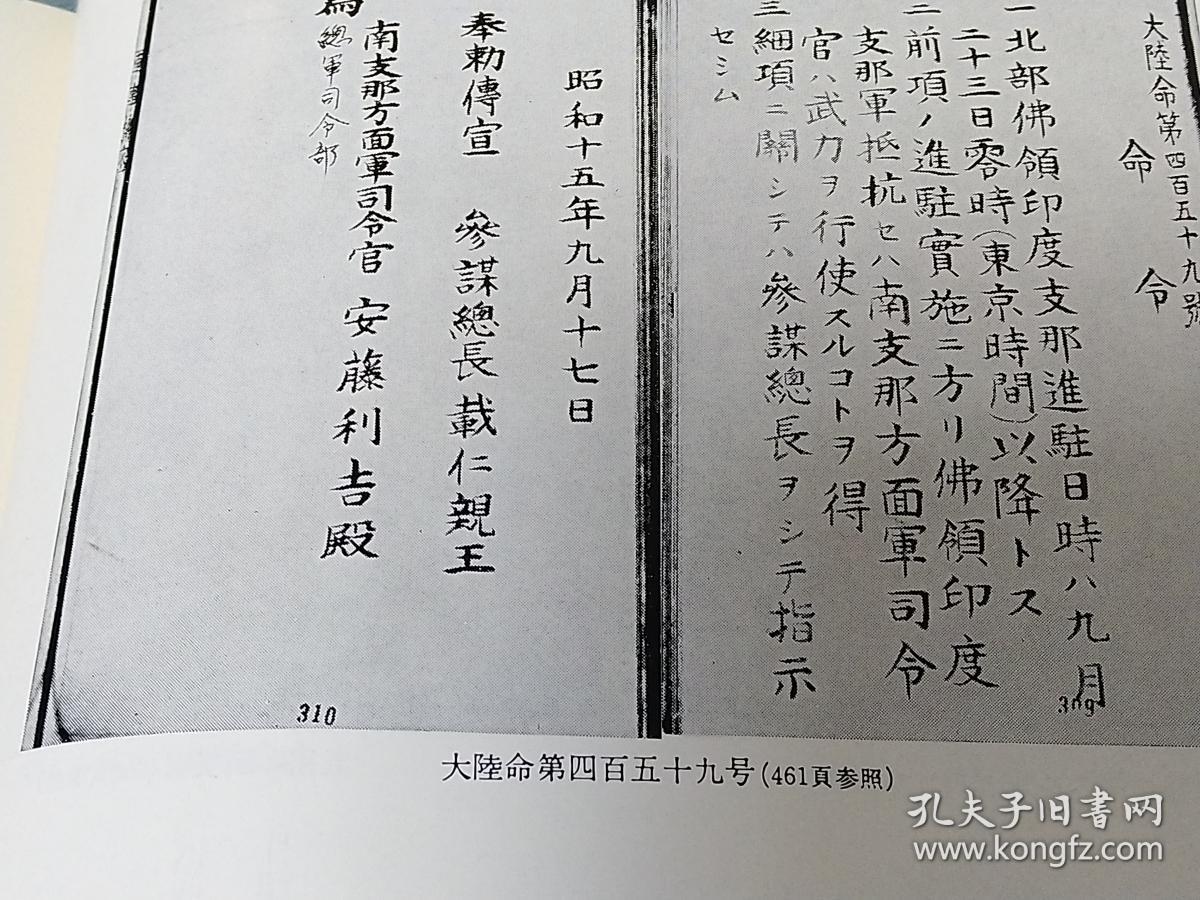 大陸命第四百五十九號
命 令
一北部佛領印度支那進駐日時ハ九月
二十三日零時(東京時間)以降トス
二前項ノ進駐實施ニ方リ佛領印度
支那軍抵抗セハ南支那方面軍司令
官ハ武力ヲ行使スルコトヲ得
三細項ニ關シテハ參謀總長ヲシテ指示
セシム
309
昭和十五年九月十七日
奉勅傳宣 參謀總長載仁親王
南支那方面軍司令官 安藤利吉殿
總軍司令部
310
大陸命第四百五十九号(461頁参照)
孔夫子旧书网
www.kongfz.com